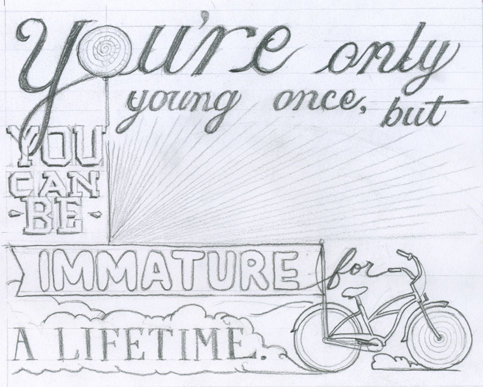 You're only
young once, but
YOU
CAN
- BE -
IMMATURE for
A LIFETIME.